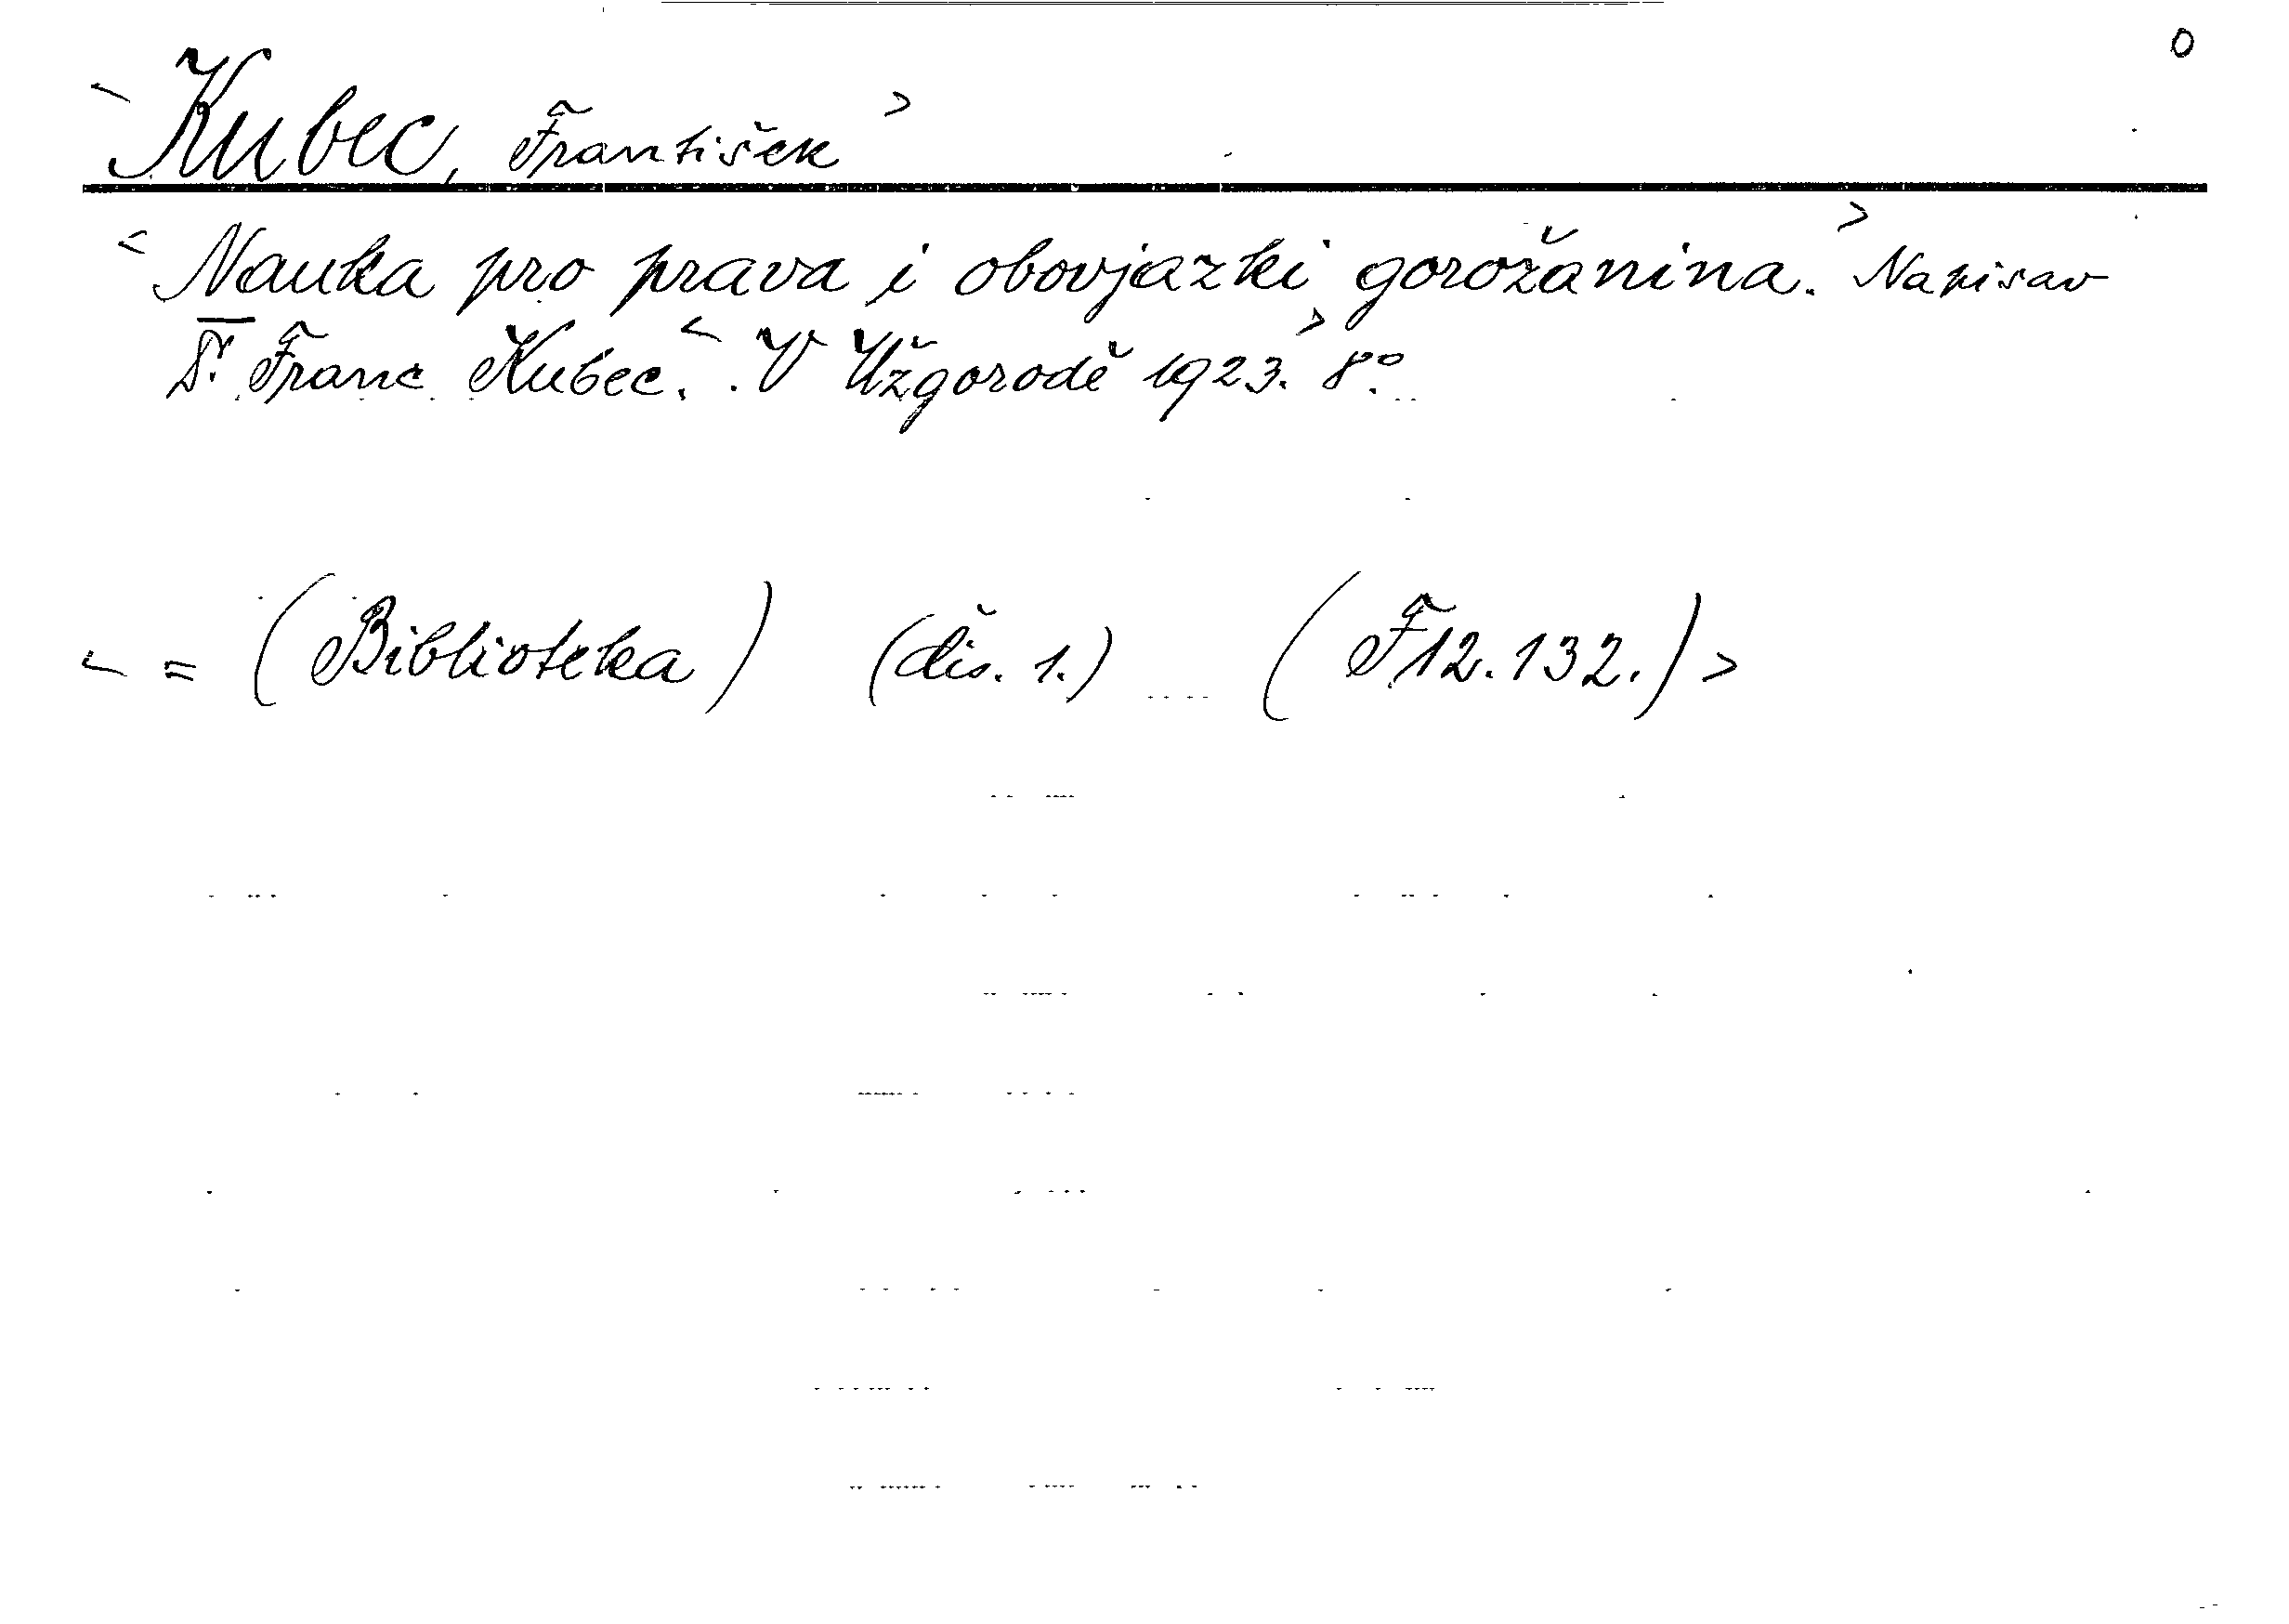 0
< Kubec, František >
< Nauka pro prava i obovjazki gorožanina. > Napisav
Dr. Franc Kubec. < V Užgorodě 1923. > 8°.
< = (Biblioteka) (čis. 1.) (F12.132.) >